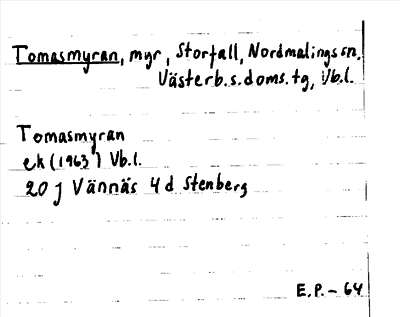 Tomasmyran, myr, Storfall, Nordmalings sn.
Västerb. s. doms. tg, Vb.l.
Tomasmyran
ek (1963) Vb.l.
20 J Vännäs 4 d Stenberg
E.P. – 64